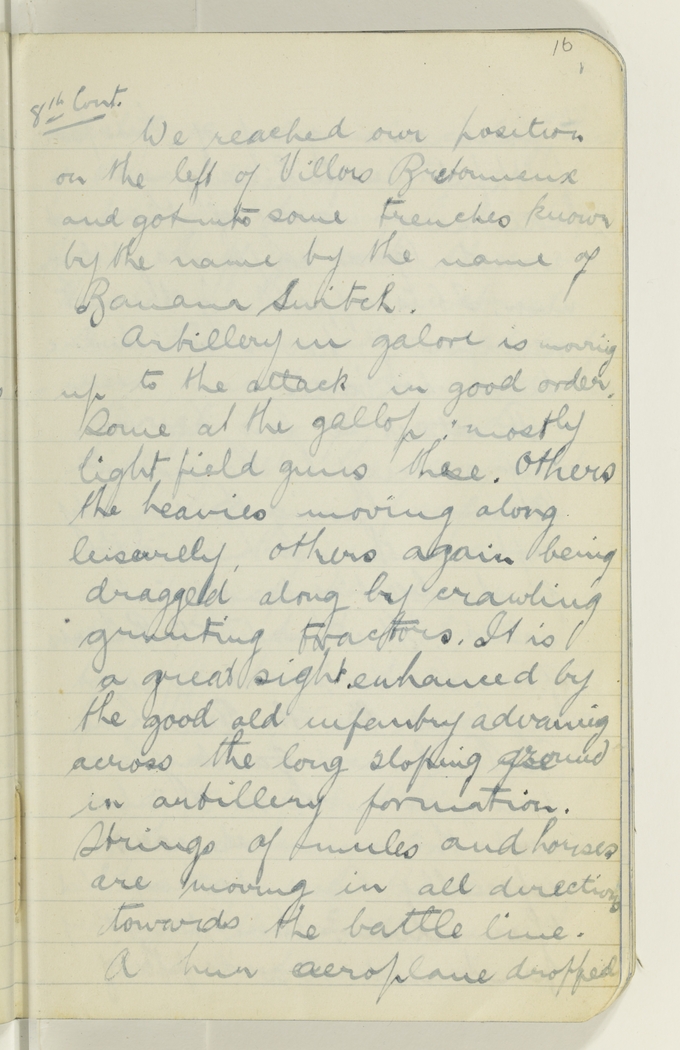 16
8th Cont.
We reached our position
on the left of Villors Bretonneux
and got into some trenches known
by the name by the name of
Banana Switch.
Artillery in galore is moving
up to the attack in good order,
Some at the gallop; mostly
light field guns these. Others
the heavies moving along
leisurely, others again being
dragged along by crawling
grunting tractors. It is
a great sight enhanced by
the good old infantry advancing
across the long sloping ground
in artillery formation.
Strings of mules and horses
are moving in all directions
towards the battle line.
A hun aeroplane dropped